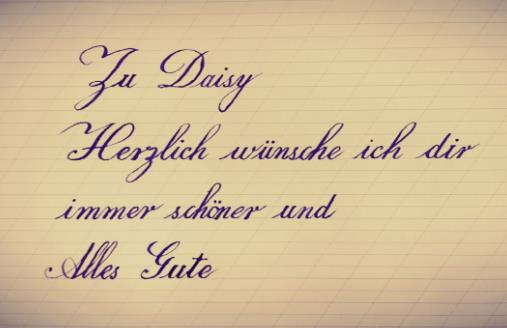 Zu Daisy
Herzlich wünsche ich dir
immer schöner und
Alles Gute